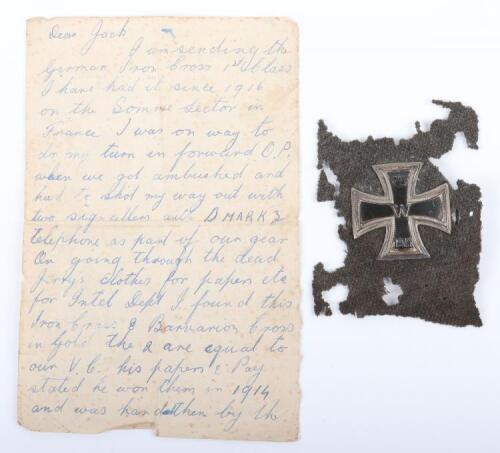 Dear Jack
I am sending the
German Iron Cross 1st Class
I have had it since 1916
on the Somme Sector in
France I was on way to
do my turn in forward O.P.
when we got ambushed and
had to shot my way out with
two signallers and D MARK 3
telephone as part of our gear
On going through the dead
Jerrys clothes for papers etc
for Intel Dept I found this
Iron Cross & Barvarion Cross
in Gold the 2 are equal to
our V.C. his papers & Pay
stated he won them in 1914
and was handthen by the
W
1914